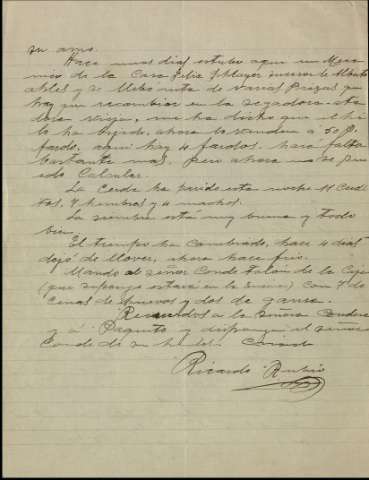 su amo.
Hace unos días estubo aqui un Meca
nico de la Casa Felix Schlayer sucesor de Alberto
Ahles y se llebó nota de varias Piezas que
hay que recambiar en la segadora-ata
dora vieja, me ha dicho que el hi
lo ha bajado, ahora lo venden a 50 P.
fardo, aqui hay 4 fardos, hará falta
bastante mas, pero ahora no se pue
de Calcular.
La Cerda ha parido esta noche 11 Cerdi
tos, 7 hembras y 4 machos.
La siembra está muy buena y todo
bien.
El tiempo ha Cambiado, hace 4 dias
dejó de llover, ahora hace frio.
Mando al señor Conde talón de la Caja
(que supongo estará en la suya) con 7 do
cenas de huevos y dos de ganso.
Recuerdos a la señora Condesa
y a Paquito y disponga el señor
Conde de su humilde Criado
Ricardo Rubio